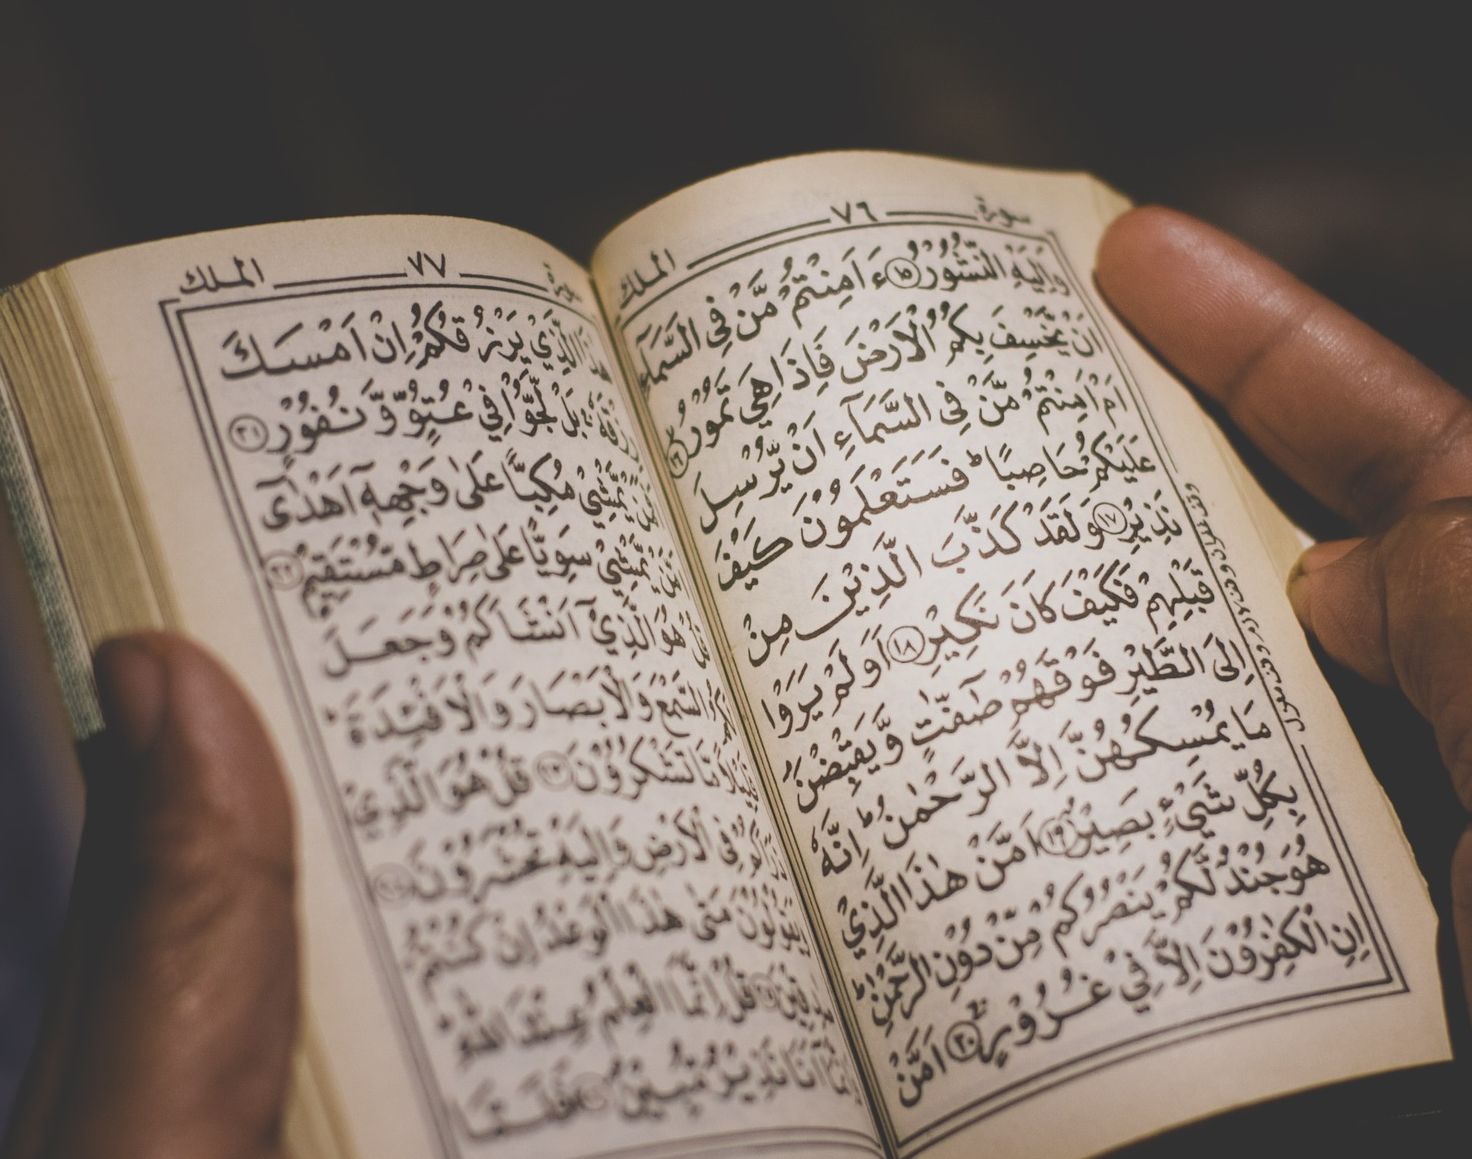 سورة ٧٦ الملك
وَاِلَيْهِ النُّشُوْرُ ۝١٥ ءَاَمِنْتُمْ مَّنْ فِي السَّمَآءِ
اَنْ يَّخْسِفَ بِكُمُ الْاَرْضَ فَاِذَا هِيَ تَمُوْرُ ۝١٦
اَمْ اَمِنْتُمْ مَّنْ فِي السَّمَآءِ اَنْ يُّرْسِلَ
عَلَيْكُمْ حَاصِبًا ؕ فَسَتَعْلَمُوْنَ كَيْفَ
نَذِيْرِ ۝١٧ وَلَقَدْ كَذَّبَ الَّذِيْنَ مِنْ
قَبْلِهِمْ فَكَيْفَ كَانَ نَكِيْرِ ۝١٨ اَوَلَمْ يَرَوْا
اِلَى الطَّيْرِ فَوْقَهُمْ صٰٓفّٰتٍ وَّيَقْبِضْنَ ؕ
مَا يُمْسِكُهُنَّ اِلَّا الرَّحْمٰنُ ؕ اِنَّهٗ
بِكُلِّ شَيْءٍۭ بَصِيْرٌ ۝١٩ اَمَّنْ هٰذَا الَّذِيْ
هُوَ جُنْدٌ لَّكُمْ يَنْصُرُكُمْ مِّنْ دُوْنِ الرَّحْمٰنِ ؕ
اِنِ الْكٰفِرُوْنَ اِلَّا فِيْ غُرُوْرٍ ۝٢٠ اَمَّنْ
سورة ٧٧ الملك
هٰذَا الَّذِيْ يَرْزُقُكُمْ اِنْ اَمْسَكَ
رِزْقَهٗ ۚ بَلْ لَّجُّوْا فِيْ عُتُوٍّ وَّنُفُوْرٍ ۝٢١
يَّمْشِيْ مُكِبًّا عَلٰى وَجْهِهٖٓ اَهْدٰٓى
يَّمْشِيْ سَوِيًّا عَلٰى صِرَاطٍ مُّسْتَقِيْمٍ ۝٢٢
قُلْ هُوَ الَّذِيْٓ اَنْشَاَكُمْ وَجَعَلَ
لَكُمُ السَّمْعَ وَالْاَبْصَارَ وَالْاَفْئِدَةَ ؕ
قَلِيْلًا مَّا تَشْكُرُوْنَ ۝٢٣ قُلْ هُوَ الَّذِيْ
ذَرَاَكُمْ فِي الْاَرْضِ وَاِلَيْهِ تُحْشَرُوْنَ ۝٢٤
وَيَقُوْلُوْنَ مَتٰى هٰذَا الْوَعْدُ اِنْ كُنْتُمْ
صٰدِقِيْنَ ۝٢٥ قُلْ اِنَّمَا الْعِلْمُ عِنْدَ اللّٰهِ ۪
وَاِنَّمَآ اَنَا نَذِيْرٌ مُّبِيْنٌ ۝٢٦ فَلَمَّا